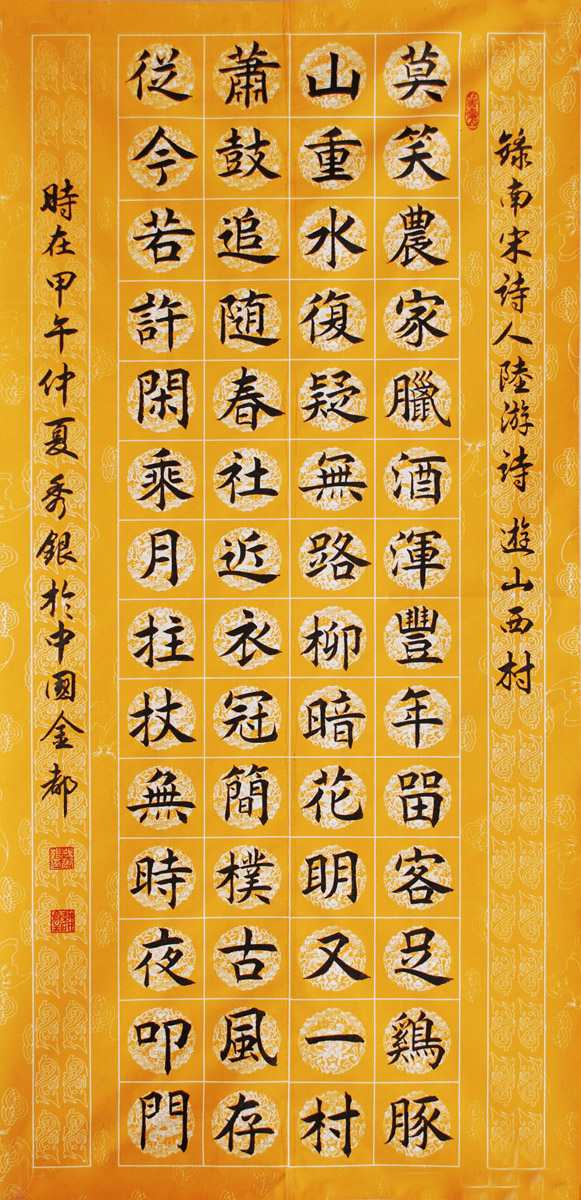 錄南宋詩人陸游詩 遊山西村
莫笑農家臘酒渾豐年留客足鷄豚
山重水復疑無路柳暗花明又一村
蕭鼓追随春社近衣冠簡樸古風存
從今若許閑乘月拄杖無時夜叩門
時在甲午仲夏秀銀於中國金都